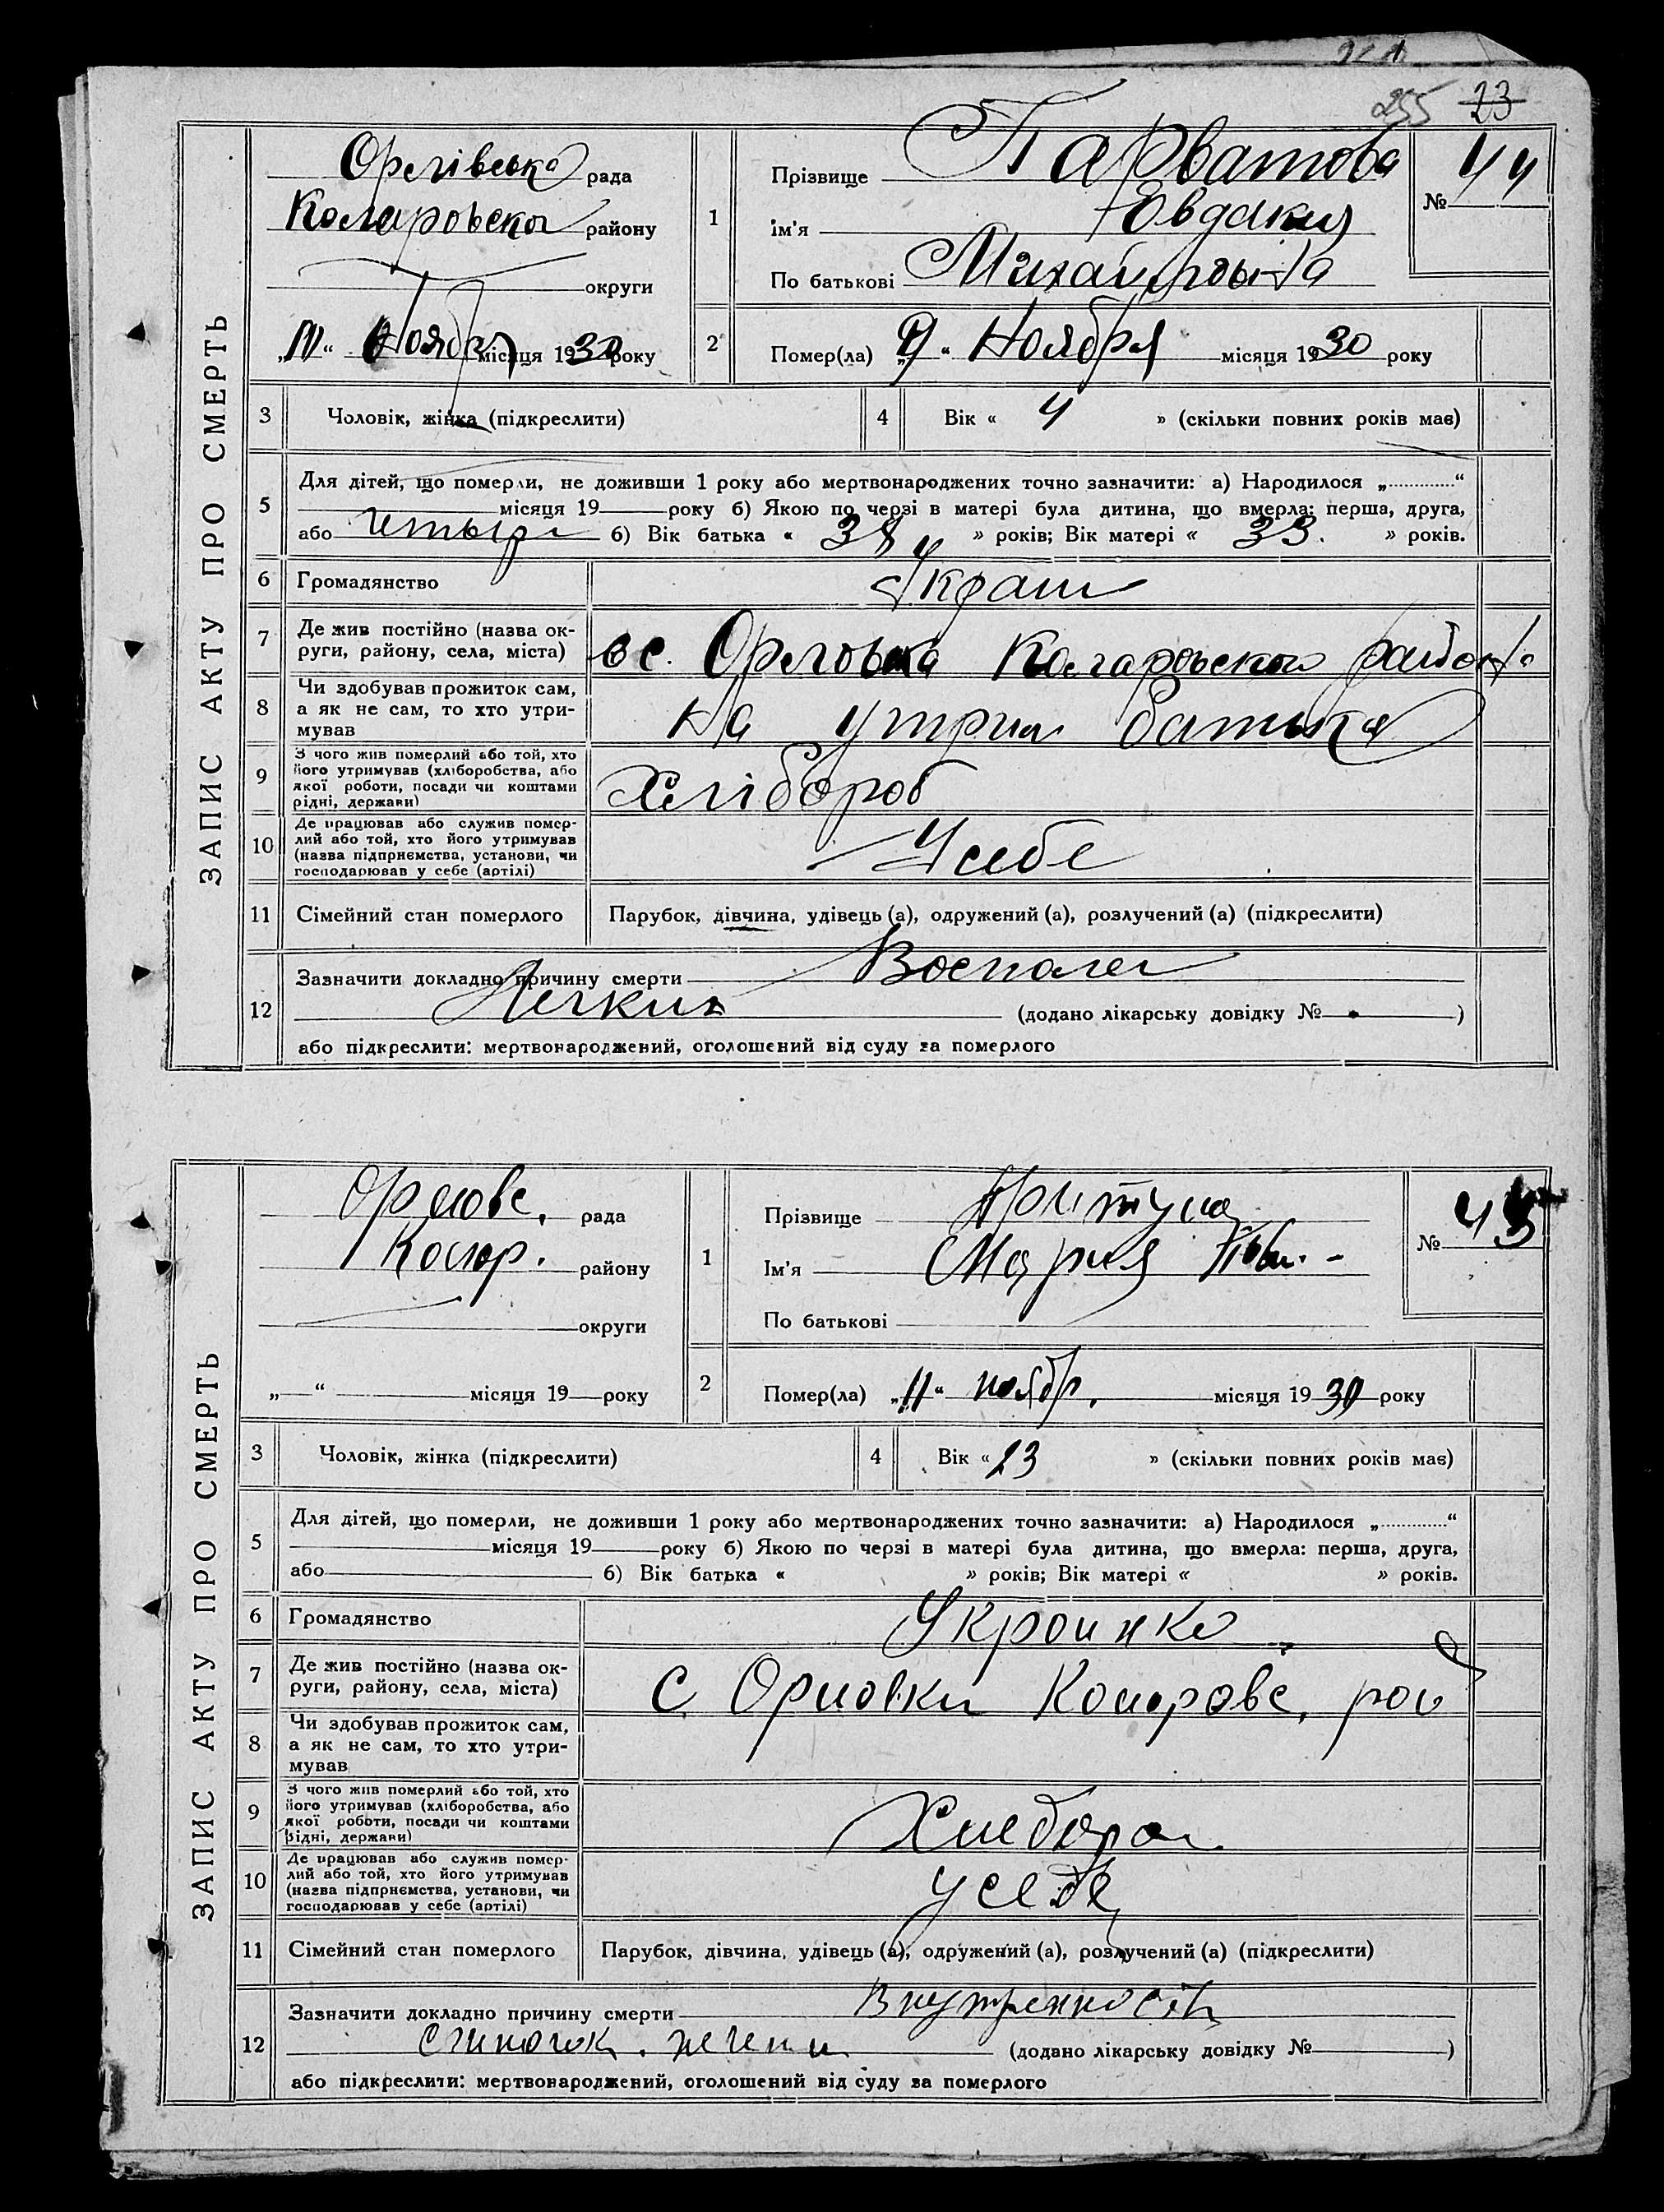 255 23
ЗАПИС АКТУ ПРО СМЕРТЬ
Орлівська рада
Коларовского району
округи
" " Ноября місяця 1930 року
1
Прізвище Гарватова
ім'я Евдакия
По батькові Михайловна
№ 44
2
Помер(ла) „9“ Ноября місяця 1930 року
3 Чоловік, жінка (підкреслити)
4 Вік « 4 » (скільки повних років має)
5
Для дітей, що померли, не доживши 1 року або мертвонароджених точно зазначити: а) Народилося „............“
місяця 19 року б) Якою по черзі в матері була дитина, що вмерла: перша, друга,
або четыре б) Вік батька « 38 » років; Вік матері « 33. » років.
6 Громадянство Украин
7 Де жив постійно (назва ок-
руги, району, села, міста) в с. Орловка Коларовского района
8 Чи здобував прожиток сам,
а як не сам, то хто утри-
мував на утрим батька
9 З чого жив померлий або той, хто
його утримував (хліборобства, або
якої роботи, посади чи коштами
рідні, держави) Хлібороб
10 Де працював або служив помер-
лий або той, хто його утримував
(назва підприємства, установи, чи
господарював у себе (артілі) У себе
11 Сімейний стан померлого Парубок, дівчина, удівець (а), одружений (а), розлучений (а) (підкреслити)
12
Зазначити докладно причину смерти Воспален
Легких (додано лікарську довідку № )
або підкреслити: мертвонароджений, оголошений від суду за померлого
ЗАПИС АКТУ ПРО СМЕРТЬ
Орловс. рада
Колар. району
округи
„ “ місяця 19 року
1
Прізвище Притула
Ім'я Мария
По батькові
№ 45
2
Помер(ла) „11“ ноябр. місяця 1930 року
3 Чоловік, жінка (підкреслити)
4 Вік « 23 » (скільки повних років має)
5
Для дітей, що померли, не доживши 1 року або мертвонароджених точно зазначити: а) Народилося „............“
місяця 19 року б) Якою по черзі в матері була дитина, що вмерла: перша, друга,
або б) Вік батька « » років; Вік матері « » років.
6 Громадянство Украинка
7 Де жив постійно (назва ок-
руги, району, села, міста) с. Орловки Коларовс. рай
8 Чи здобував прожиток сам,
а як не сам, то хто утри-
мував
9 З чого жив померлий або той, хто
його утримував (хліборобства, або
якої роботи, посади чи коштами
рідні, держави) Хлебороб
10 Де працював або служив помер-
лий або той, хто його утримував
(назва підприємства, установи, чи
господарював у себе (артілі) у себе
11 Сімейний стан померлого Парубок, дівчина, удівець (а), одружений (а), розлучений (а) (підкреслити)
12
Зазначити докладно причину смерти Внутренность
печени (додано лікарську довідку № )
або підкреслити: мертвонароджений, оголошений від суду за померлого